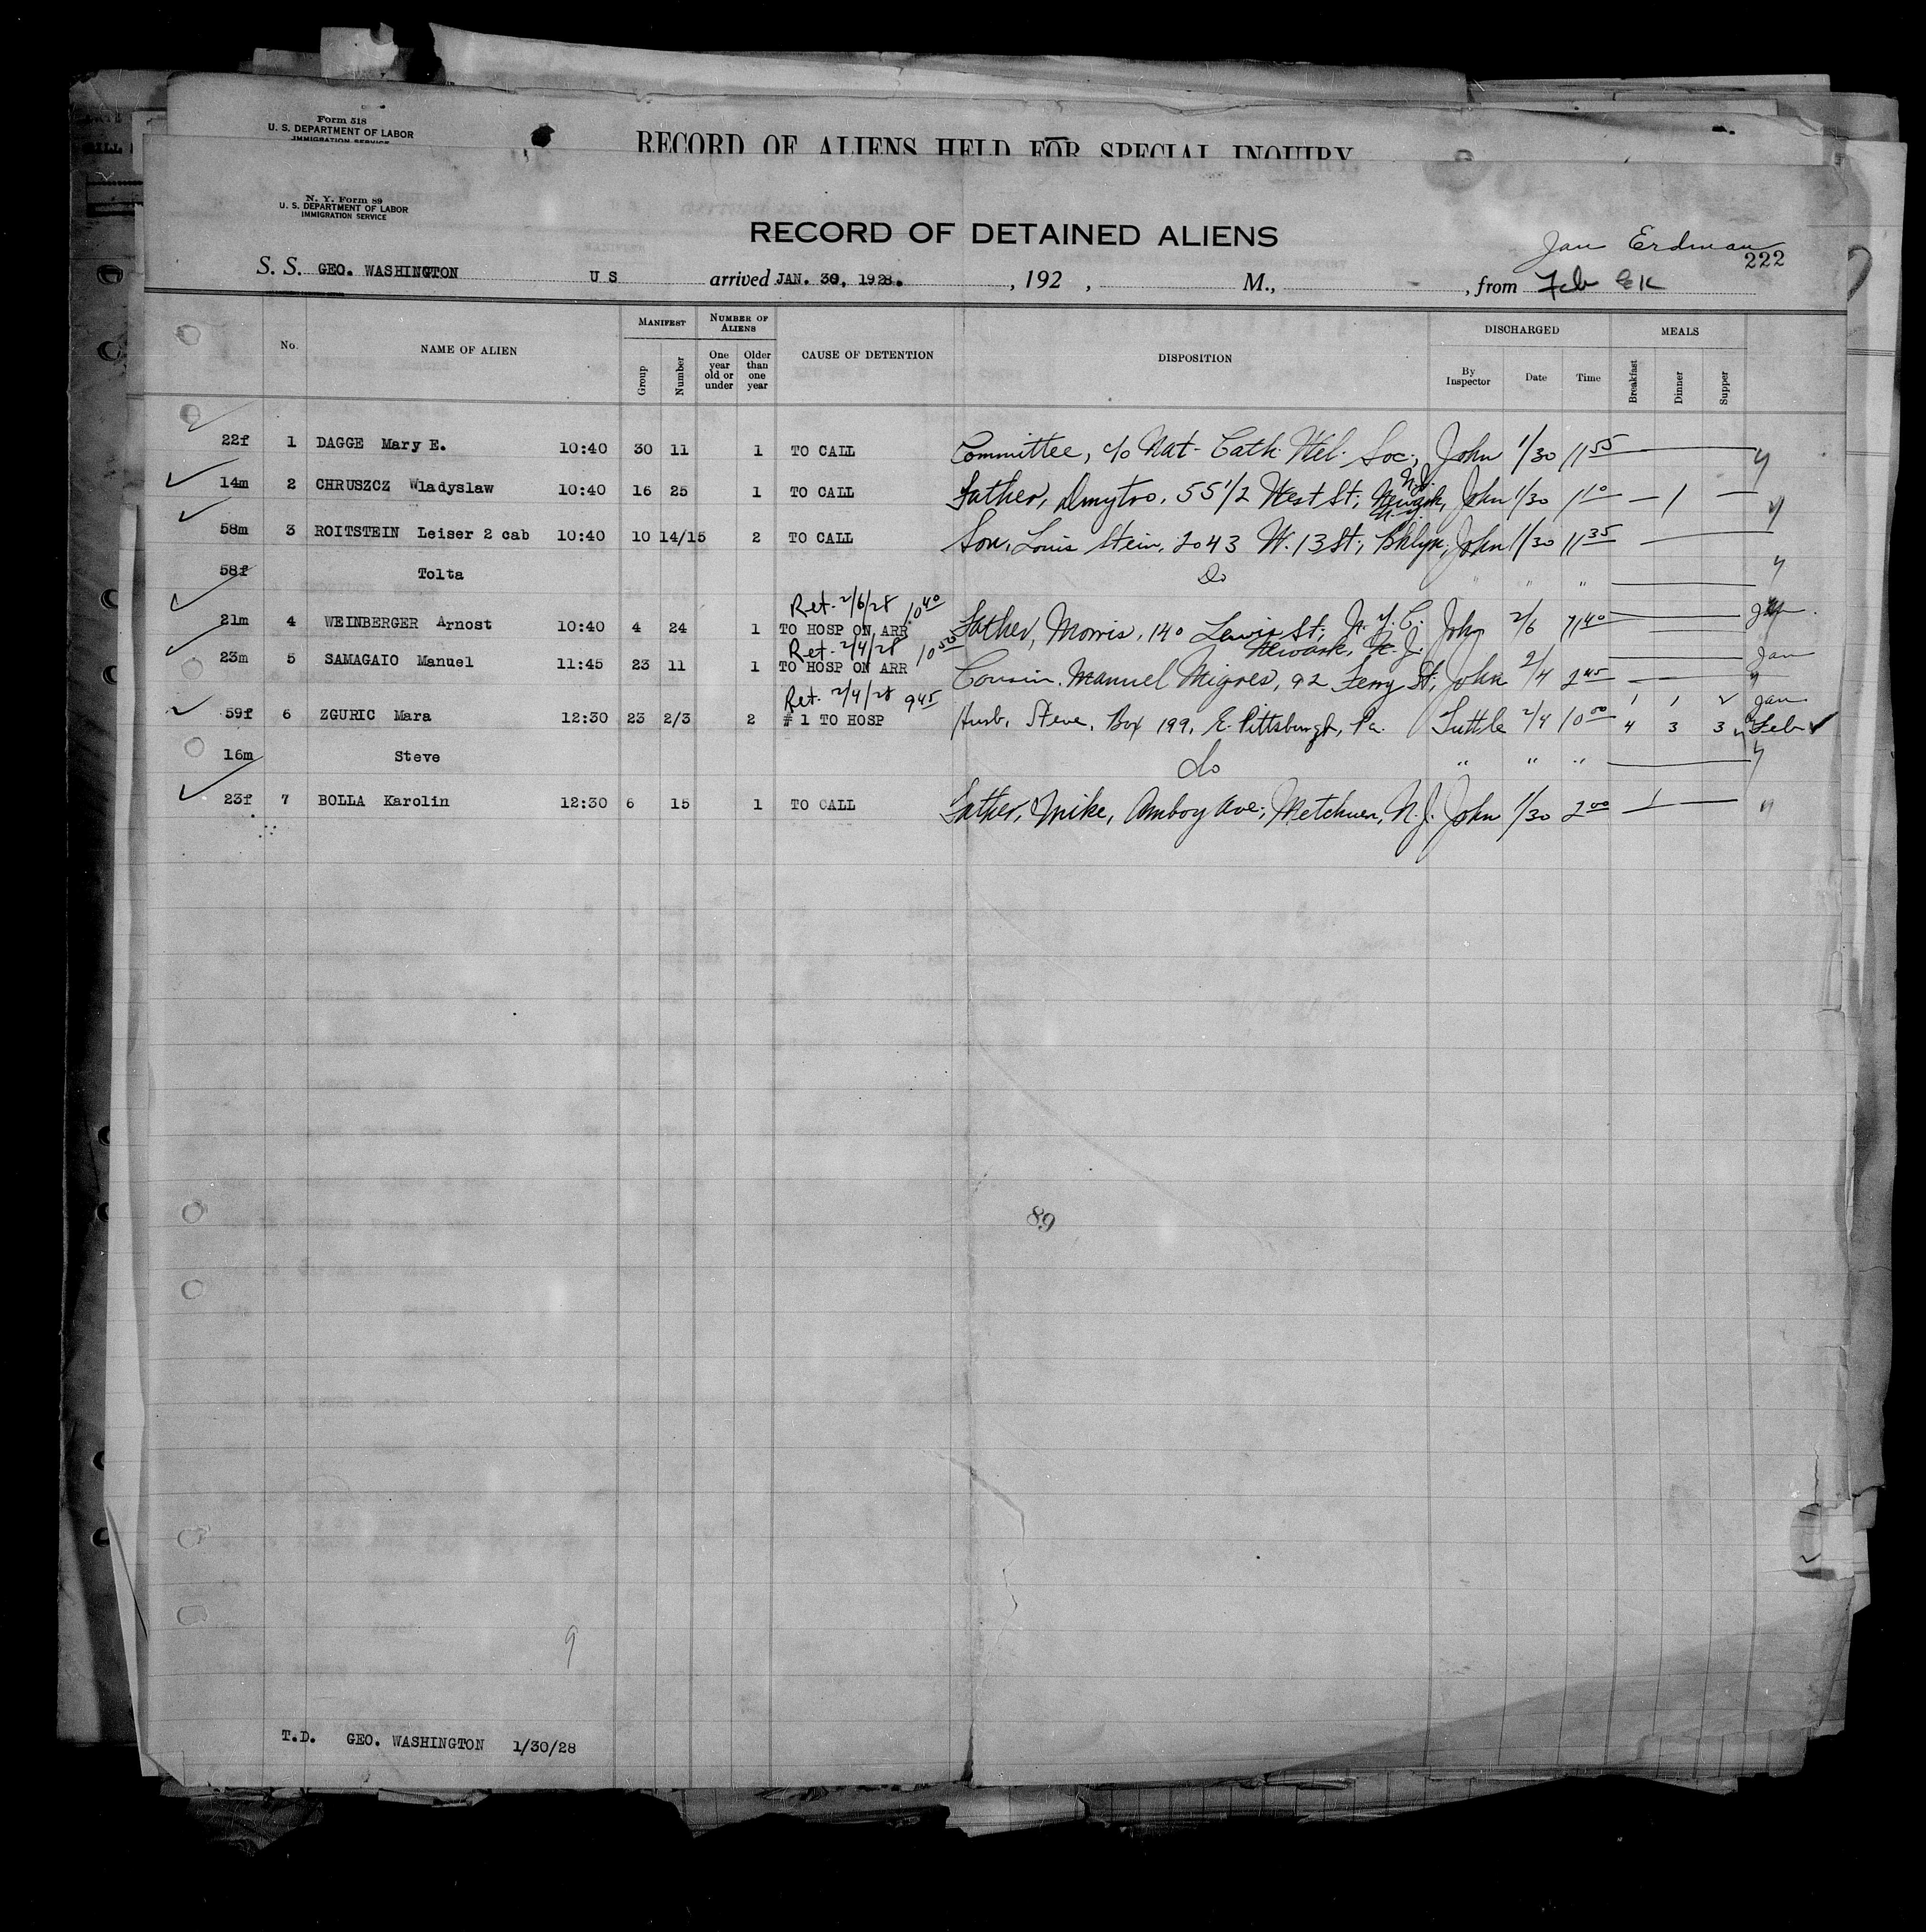 Form 518
U. S. DEPARTMENT OF LABOR
IMMIGRATION SERVICE
RECORD OF ALIENS HELD FOR SPECIAL INQUIRY
N. Y. Form 89
U. S. DEPARTMENT OF LABOR
IMMIGRATION SERVICE
RECORD OF DETAINED ALIENS
Jan Erdman
222
S. S. GEO. WASHINGTON U S arrived JAN. 30, 1928. , 192 , M., , from Feb
No. NAME OF ALIEN MANIFEST Group Number NUMBER OF ALIENS One year old or under Older than one year CAUSE OF DETENTION DISPOSITION DISCHARGED By Inspector Date Time MEALS Breakfast Dinner Supper
22f 1 DAGGE Mary E. 10:40 30 11 1 TO CALL Committee, c/o Nat. Cath. Wel. Soc., John 1/30 11 55
N.J.
14m 2 CHRUSZCZ Wladyslaw 10:40 16 25 1 TO CALL Father, Dmytro, 55 1/2 West St., Newark, John 1/30 1 10 — 1 — "
58m 3 ROITSTEIN Leiser 2 cab 10:40 10 14/15 2 TO CALL Son, Louis Stein, 2043 W. 13 St., Bklyn. John 1/30 11 35
58f Tolta Do " " " "
Ret. 2/6/28 10 40
21m 4 WEINBERGER Arnost 10:40 4 24 1 TO HOSP ON ARR Father, Morris, 140 Lewis St., N.Y.C. John 2/6 11 40 Jan
Ret. 2/4/28 10 50 Newark, N.J.
23m 5 SAMAGAIO Manuel 11:45 23 11 1 TO HOSP ON ARR Cousin, Manuel Migres, 92 Ferry St., John 2/4 2 45 Jan
Ret. 2/4/28 9 45 1 1 2 Jan
59f 6 ZGURIC Mara 12:30 23 2/3 2 # 1 TO HOSP Husb, Steve, Box 199, E. Pittsburgh, Pa. Tuttle 2/4 10 00 4 3 3 Feb
16m Steve do " " " "
23f 7 BOLLA Karolin 12:30 6 15 1 TO CALL Father, Mike, Amboy Ave., Metchuen, N.J. John 1/30 2 00 — 1 — "
89
9
T.D. GEO. WASHINGTON 1/30/28